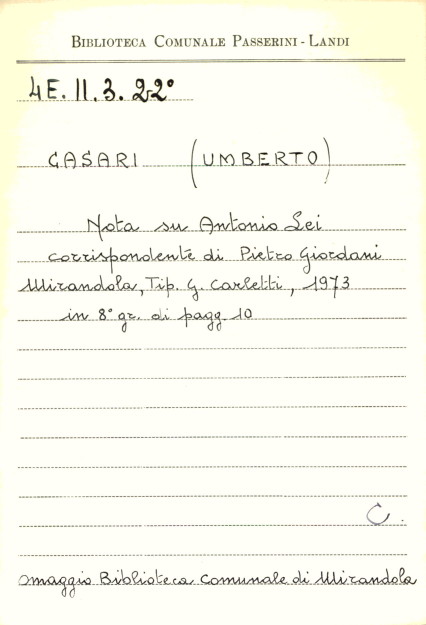 BIBLIOTECA COMUNALE PASSERINI - LANDI
4E. II. 3. 2-2°
CASARI (UMBERTO)
Nota su Antonio Lei
corrispondente di Pietro Giordani
Mirandola, Tip. G. Carletti, 1973
in 8° gr. di pagg. 10
C.
omaggio Biblioteca Comunale di Mirandola